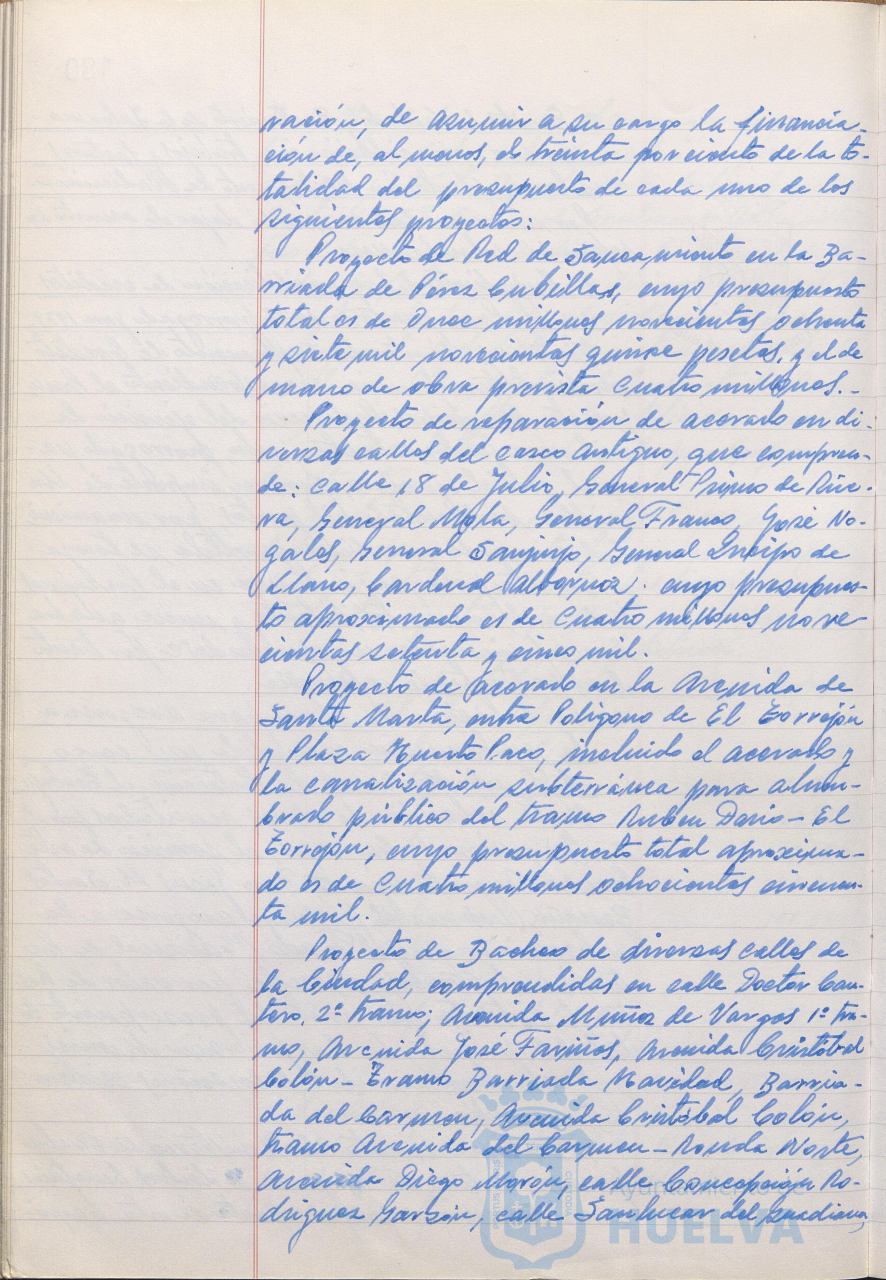 ración, de asumir a su cargo la financia-
ción de, al menos, el treinta por ciento de la to-
talidad del presupuesto de cada uno de los
siguientes proyectos:
Proyecto de Red de Saneamiento en la Ba-
rriada de Pérez Cubillas, cuyo presupuesto
total es de Once millones novecientas ochenta
y siete mil novecientas quince pesetas, y el de
mano de obra prevista Cuatro millones.-
Proyecto de reparación de acerado en di-
versas calles del casco Antiguo, que compren-
de: calle 18 de Julio, General Primo de Rive-
ra, General Mola, General Franco, José No-
gales, General Sanjurjo, General Queipo de
Llano, Cardenal Albornoz. cuyo presupues-
to aproximado es de Cuatro millones nove-
cientas setenta y cinco mil.
Proyecto de acerado en la Avenida de
Santa Marta, entre Polígono de El Torrejón
y Plaza Huerto Paco, incluido el acerado y
la canalización subterránea para alum-
brado público del tramo Rubén Darío - El
Torrejón, cuyo presupuesto total aproxima-
do es de Cuatro millones ochocientas cincuen-
ta mil.
Proyecto de Bacheo de diversas calles de
la Ciudad, comprendidas en calle Doctor Can-
tero, 2º tramo; Avenida Muñoz de Vargas 1º tra-
mo, Avenida José Fariñas, Avenida Cristóbal
Colón - Tramo Barriada Navidad, Barria-
da del Carmen, Avenida Cristóbal Colón,
tramo Avenida del Carmen - Ronda Norte,
Avenida Diego Morón, calle Concepción Ro-
driguez Garzón, calle Sanlucar del Guadiana,
Ayuntamiento de
HUELVA